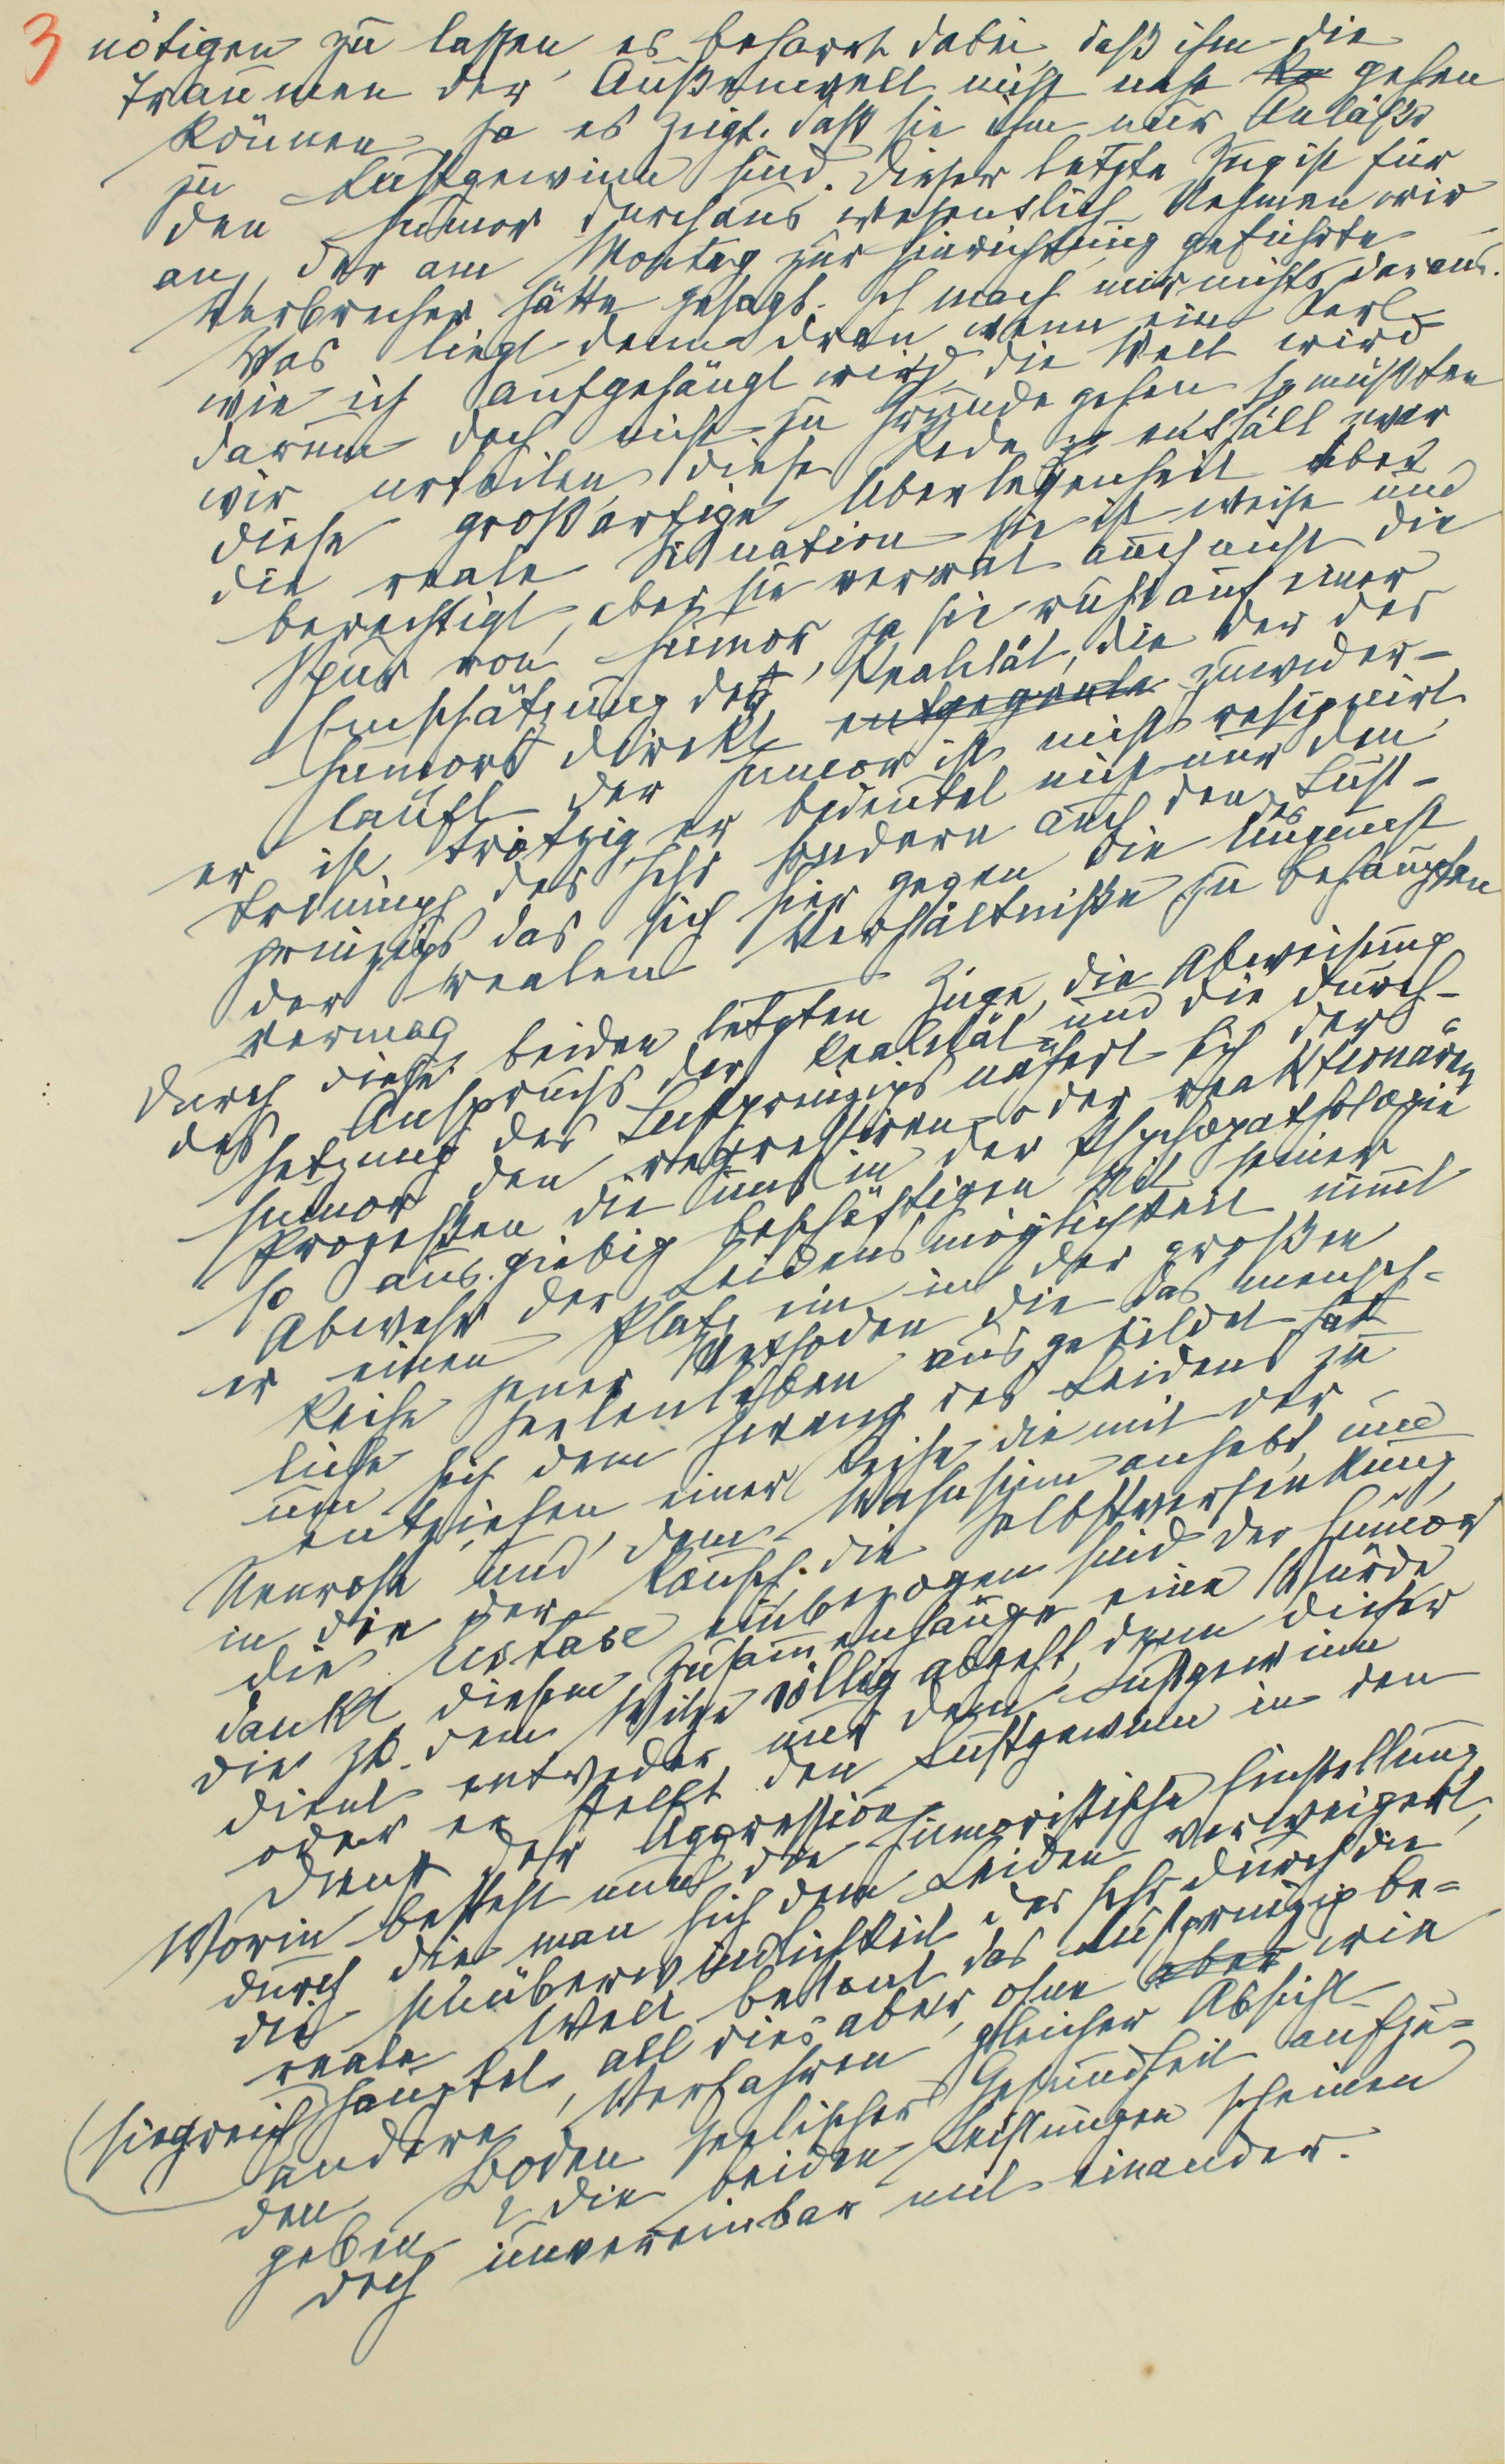 3 nötigen zu lassen, es beharrt dabei, daß ihm die
Traumen der Außenwelt nicht nahe gehen
können, ja es zeigt, daß sie ihm nur Anläße
zu Lustgewinn sind. Dieser letzte Zug ist für
den Humor durchaus wesentlich. Nehmen wir
an, der am Montag zur Hinrichtung geführte
Verbrecher hätte gesagt: Ich mach mir nichts daraus.
Was liegt denn dran, wenn ein Kerl
wie ich aufgehängt wird, die Welt wird
darum doch nicht zu Grunde gehen, so müßten
wir urteilen, diese Rede enthält zwar
diese großartige Überlegenheit über
die reale Situation, sie ist weise und
berechtigt, aber sie verrät auch nicht die
Spur von Humor, ja sie ruht auf einer
Einschätzung der Realität, die der des
Humors direkt entgegenla zuwider-
läuft. Der Humor ist nicht resignirt,
er ist trotzig, er bedeutet nicht nur den
Triumph des Ichs, sondern auch den des Lust-
prinzips, das sich hier gegen die Ungunst
der realen Verhältniße zu behaupten
vermag.
Durch diese beiden letzten Züge, die Abweisung
des Anspruchs der Realität und die Durch-
setzung des Lustprinzips nähert sich der
Humor den regressiven oder reaktionären
Prozeßen, die uns in der Psychopathologie
so ausgiebig beschäftigen. Mit seiner
Abwehr der Leidensmöglichkeit nimmt
er einen Platz ein in der großen
Reihe jener Methoden, die das mensch-
liche Seelenleben ausgebildet hat,
um sich dem Zwang des Leidens zu
entziehen, einer Reihe, die mit der
Neurose und dem Wahnsinn anhebt, und
in die der Rausch, die Selbstversenkung,
die Ekstase einbezogen sind. Der Humor
dankt diesem Zusammenhange eine Würde,
die zB. dem Witze völlig abgeht, denn dieser
dient entweder nur dem Lustgewinn
oder er stellt den Lustgewinn in den
Dienst der Aggression.
Worin besteht nun die humoristische Einstellung,
durch die man sich dem Leiden verweigert,
die Unüberwindlichkeit des Ichs durch die
reale Welt betont, das Lustprinzip be-
(siegreich) hauptet, all dies aber, ohne aber wie
andere Verfahren gleicher Absicht
den Boden seelischer Gesundheit aufzu-
geben? Die beiden Leistungen scheinen
doch unvereinbar mit einander.